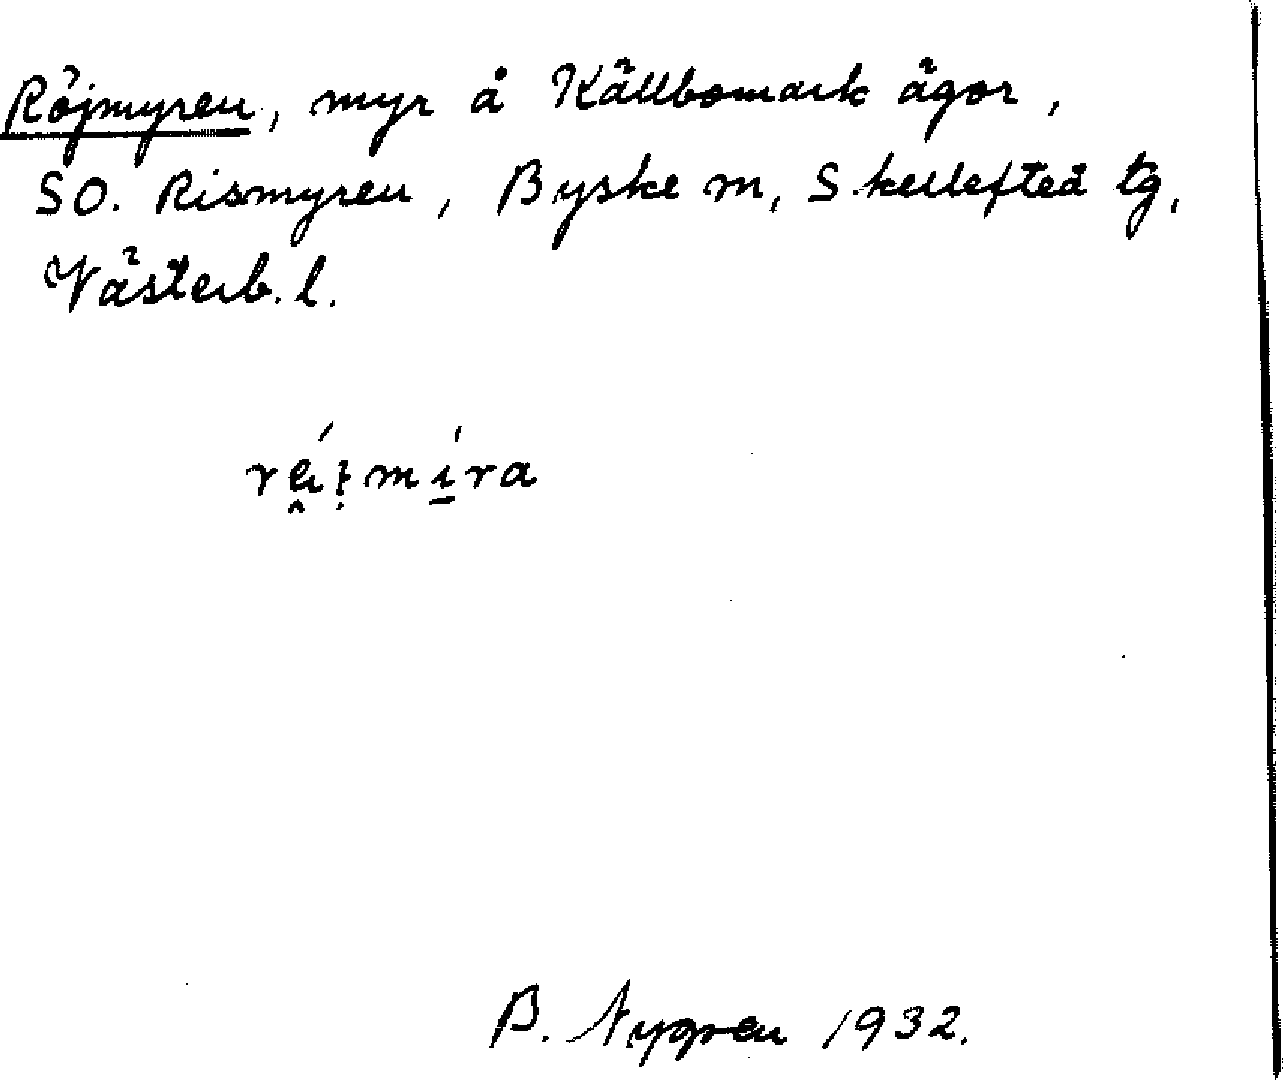 Röjmyren, myr å Källbomark ägor,
SO. Rismyren, Byske sn, Skellefteå tg,
Västerb. l.
B. Nygren 1932.